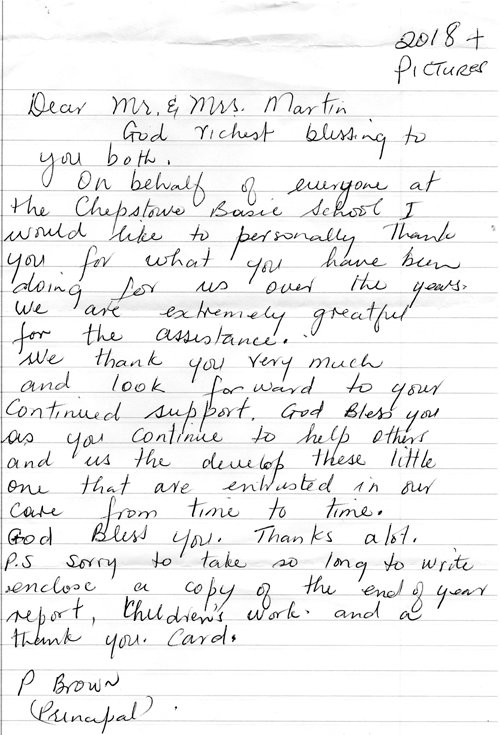 2018 +
PICTURES
Dear Mr. & Mrs. Martin
God richest blessing to
you both.
On behalf of everyone at
the Chepstowe Basic School I
would like to personally Thank
you for what you have been
doing for us over the years.
We are extremely greatful
for the assistance.
We thank you very much
and look forward to your
Continued support. God Bless you
as you continue to help others
and us the develop these little
one that are entrusted in our
care from time to time.
God Bless you. Thanks alot.
P.S sorry to take so long to write
enclose a copy of the end of year
report, Children's work. and a
thank you. Card.
P Brown
(Principal)